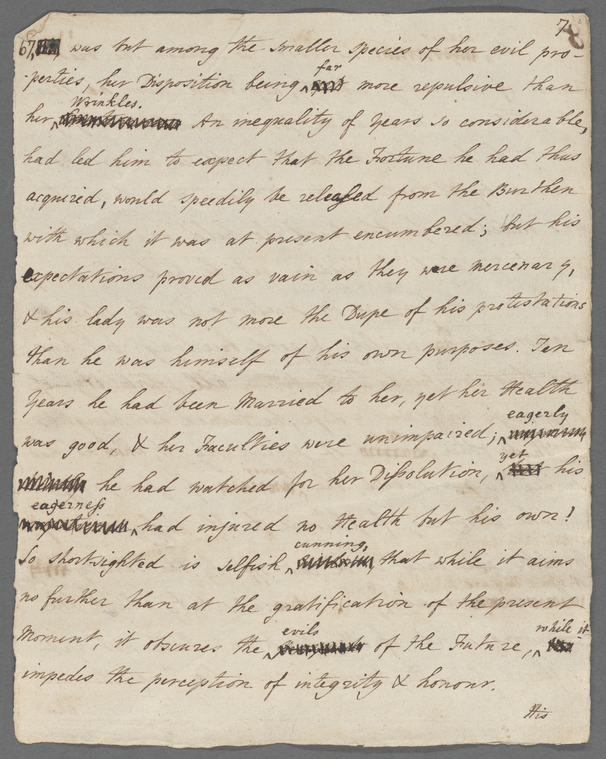 7
67, was but among the smaller species of her evil pro-
perties, her Disposition being far more repulsive than
her wrinkles. An inequality of years so considerable,
had led him to expect that the Fortune he had thus
acquired, would speedily be released from the Burthen
with which it was at present encumbered; but his
expectations proved as vain as they were mercenary,
& his lady was not more the Dupe of his protestations
than he was himself of his own purposes. Ten
years he had been Married to her, yet her Health
was good, & her Faculties were unimpaired; eagerly
he had watched for her Dissolution, yet his
eagerness had injured no Health but his own!
So shortsighted is selfish cunning, that while it aims
no further than at the gratification of the present
Moment, it obscures the evils of the Future, while it
impedes the perception of integrity & honour.
His